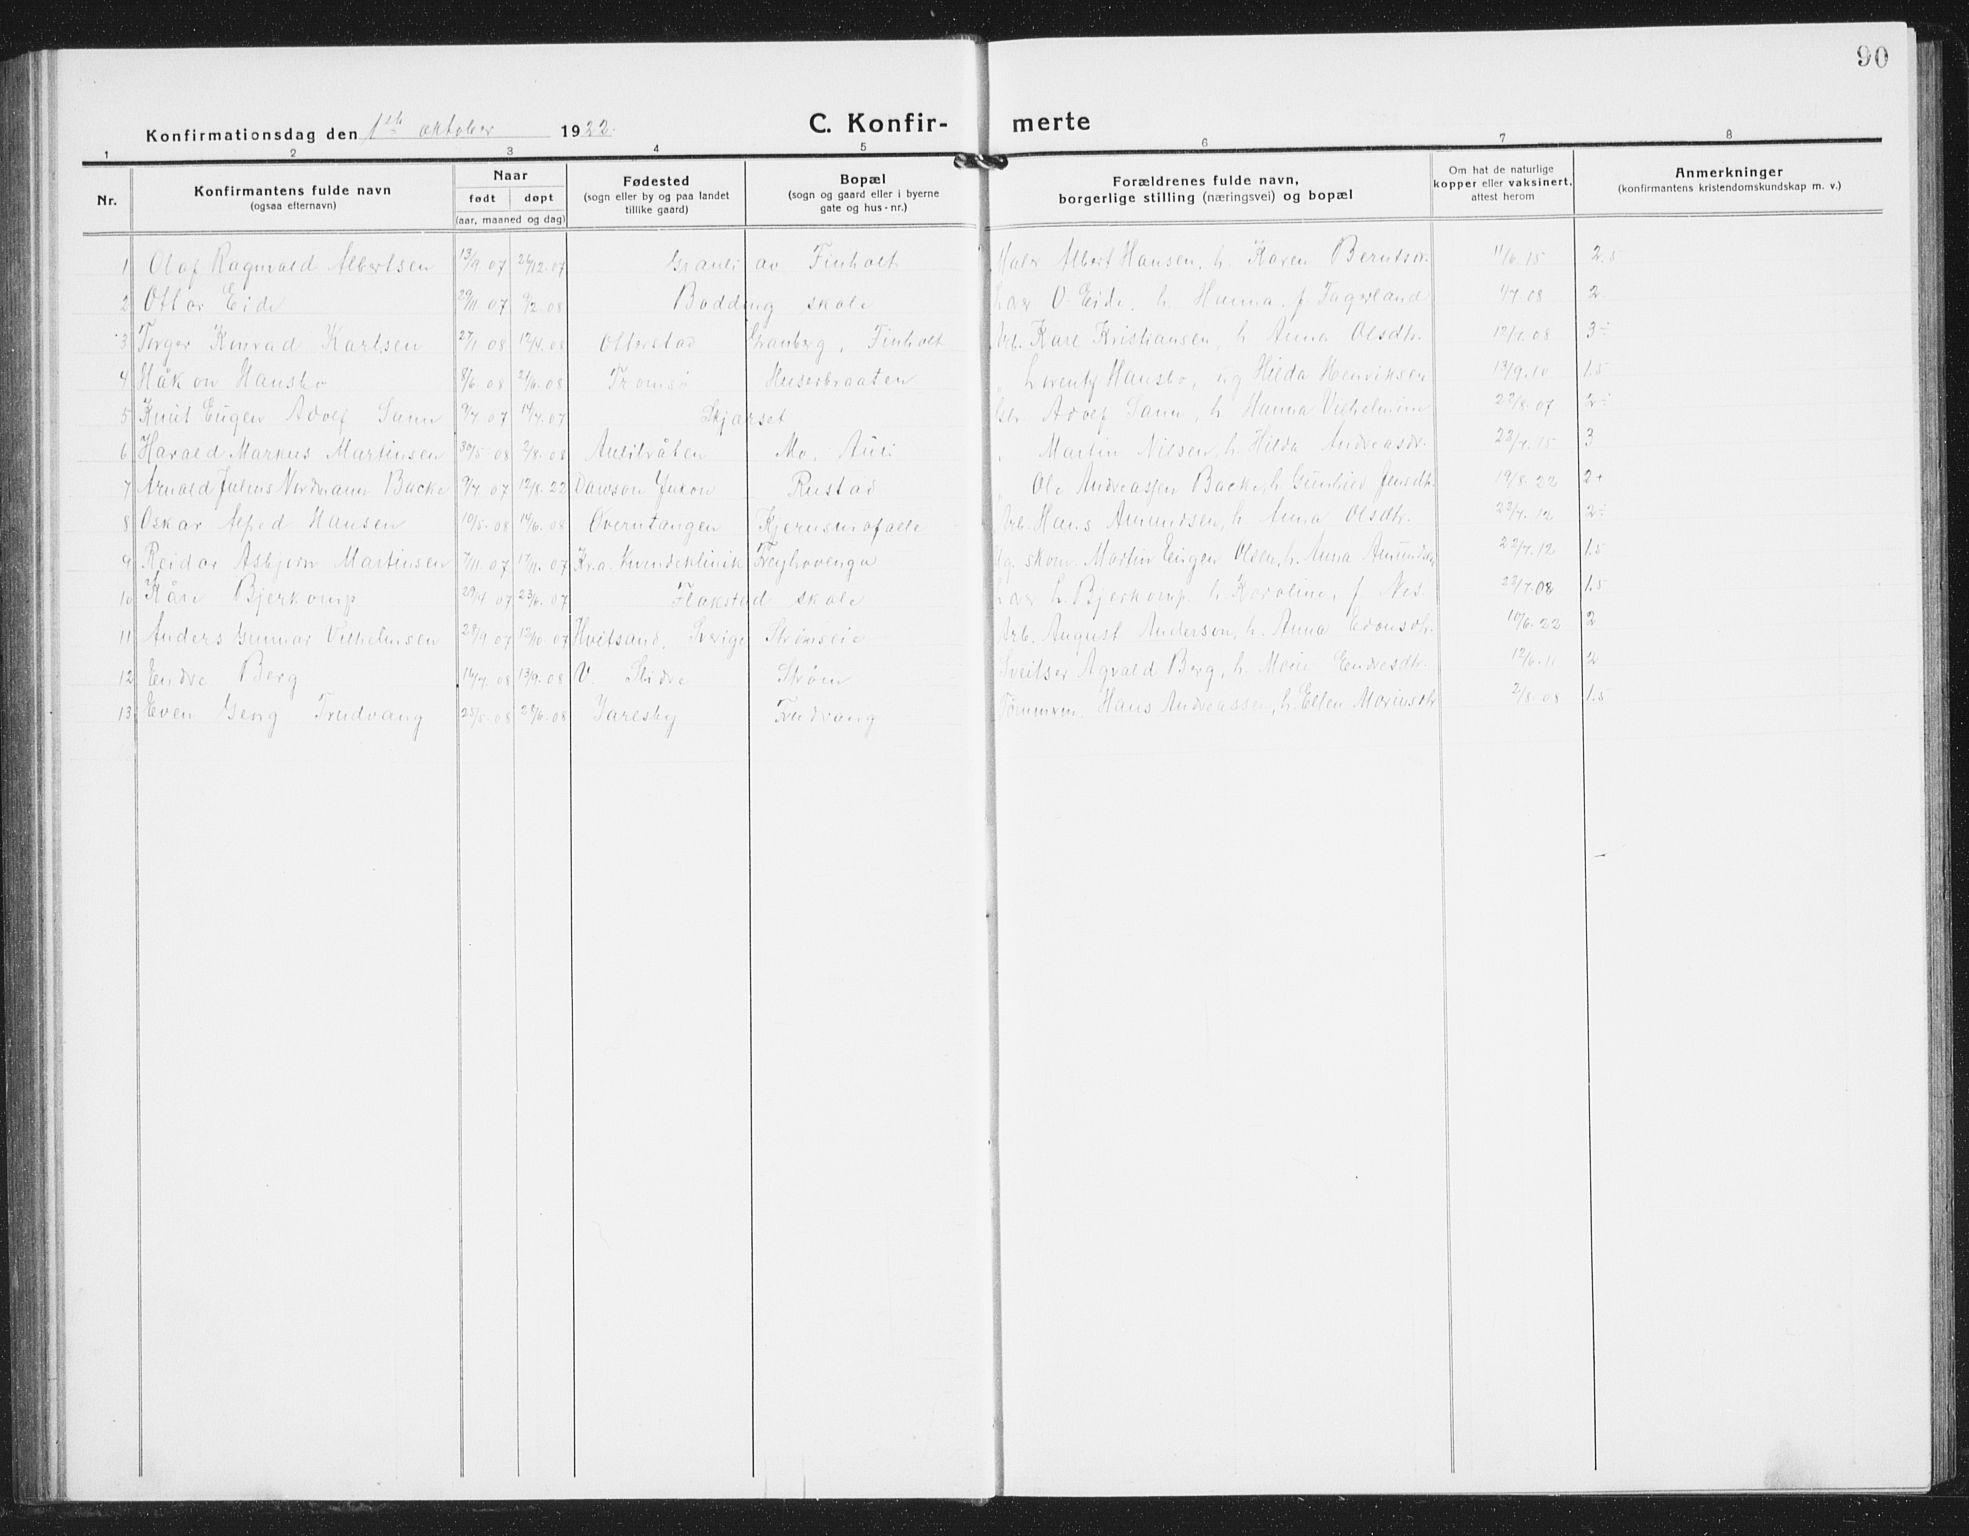 90
Konfirmationsdag den 1ste oktober 1922.
C. Konfir- merte
1 2 3 4 5 6 7 8
Nr.
Konfirmantens fulde navn
(ogsaa efternavn)
Naar
født døpt
(aar, maaned og dag)
Fødested
(sogn eller by og paa landet
tillike gaard)
Bopæl
(sogn og gaard eller i byerne
gate og hus-nr.)
Forældrenes fulde navn,
borgerlige stilling (næringsvei) og bopæl
Om hat de naturlige
kopper eller vaksinert,
attest herom
Anmerkninger
(konfirmantens kristendomskundskap m. v.)
1 Olaf Ragnvald Albertsen 13/9 07 26/12.07 Grauli av Finholt Maler Albert Hansen, h. Karen Berntsdr. 11/6.15 2.5
2 Ottar Eide 29/11 07 9/2.08 Bodding skole Lær O. Eide, h. Hanna f. Fagerland 08 2
3 Torger Konrad Karlsen 27/1 08 12/4.08 Otterstad Granberg, Finholt Arb. Karl Kristiansen, h. Anna Olsdtr. 08 3÷
4 Håkon Hansbo 8/6.08 21/6.08 Tromsø Huserbraaten " Lorentz Hansbo, og Hilda Henriksen 13/9.10 1.5
5 Knut Eugen Adolf Sann 9/7 07 14/7.07 Skjærset Adolf Sann, h. Hanna Vilhelmine 22/8.07 2÷
6 Harald Markus Martinsen 30/5.08 2/8.08 Aulitråten Mo, Auli " Martin Nilsen, h. Hilda Andreasdr. 22/7.15 3
7 Arnold Julius Nordmann Backe 9/7.07 12/8.22 Dawson Yukon Rustad " Ole Andreassen Backe, h. Gunhild Jensdtr. 19/8.22 2+
8 Oskar Alfred Hansen 10/5.08 14/6.08 Øverntangen Arb. Hans Amundsen, h. Anna Olsdtr. 22/7.12 2÷
9 Reidar Asbjørn Martinsen 7/11.07 17/11.07 Kr.a. Kvindeklinik skom. Martin Eugen Olsen, h. Anna Amundsen 22/7.12 1.5
10 Kåre Bjerkomp 29/4 07 23/6.07 Flakstad skole Lær L. Bjerkomp h. Karoline, f. Nes 22/7.08 1.5
11 Anders Gunnar Vilhelmsen 28/9 07 12/10 07 Hvitsand, Sverige Strømseie Arb. August Anderson, h. Anna 10/6.22 2
12 Endre Berg 16/7.08 13/9.08 V. Slidre Strøm Sveitser Agvald Berg, h. Marie Endresdtr. 12/6.11 2
13 Even Georg Trudvang 25/5.08 28/6.08 Jaresby Trudvang Tømmerm. Hans Andreassen, h. Ellen Mariusdtr 2/8.08 1.5